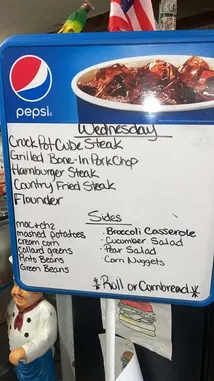 pepsi
Wednesday
Crock Pot Cube Steak
Grilled Bone-In Pork Chop
Hamburger Steak
Country Fried Steak
Flounder
Sides
mac + chz
mashed potatoes
cream corn
collard greens
Pinto Beans
Green Beans
· Broccoli Casserole
· Cucumber Salad
· Pear Salad
· Corn Nuggets
*Roll or Cornbread*